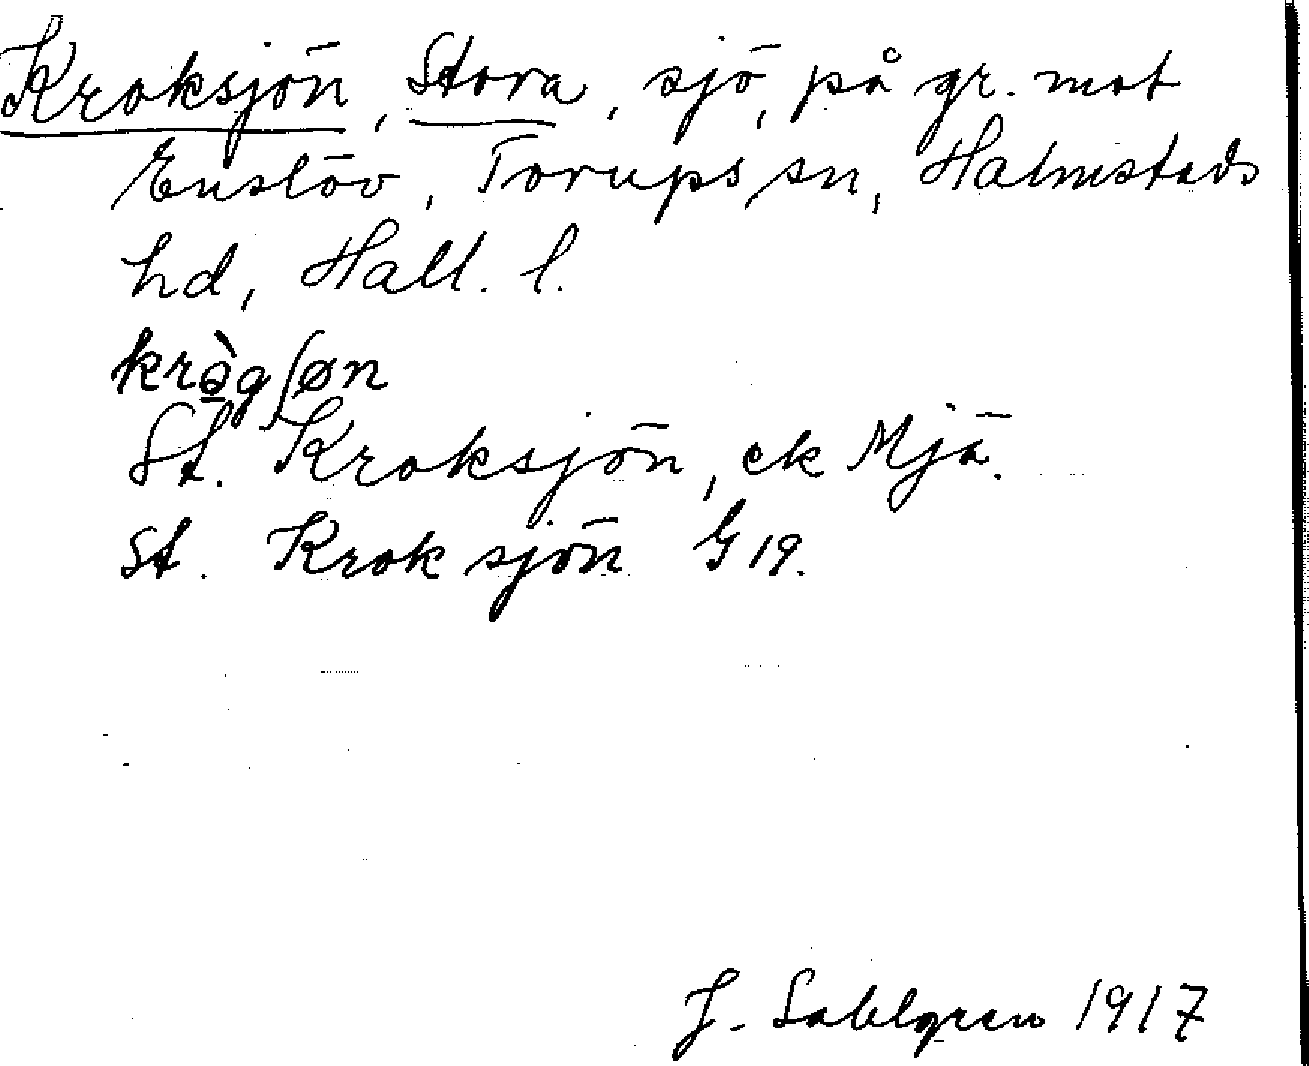 Kroksjön, Stora, sjö, på gr. mot
Enslöv, Torups sn, Halmstads
hd, Hall. l.
krògʃøn
St. Kroksjön, ek Mjä.
St. Kroksjön G 19.
J. Sahlgren 1917